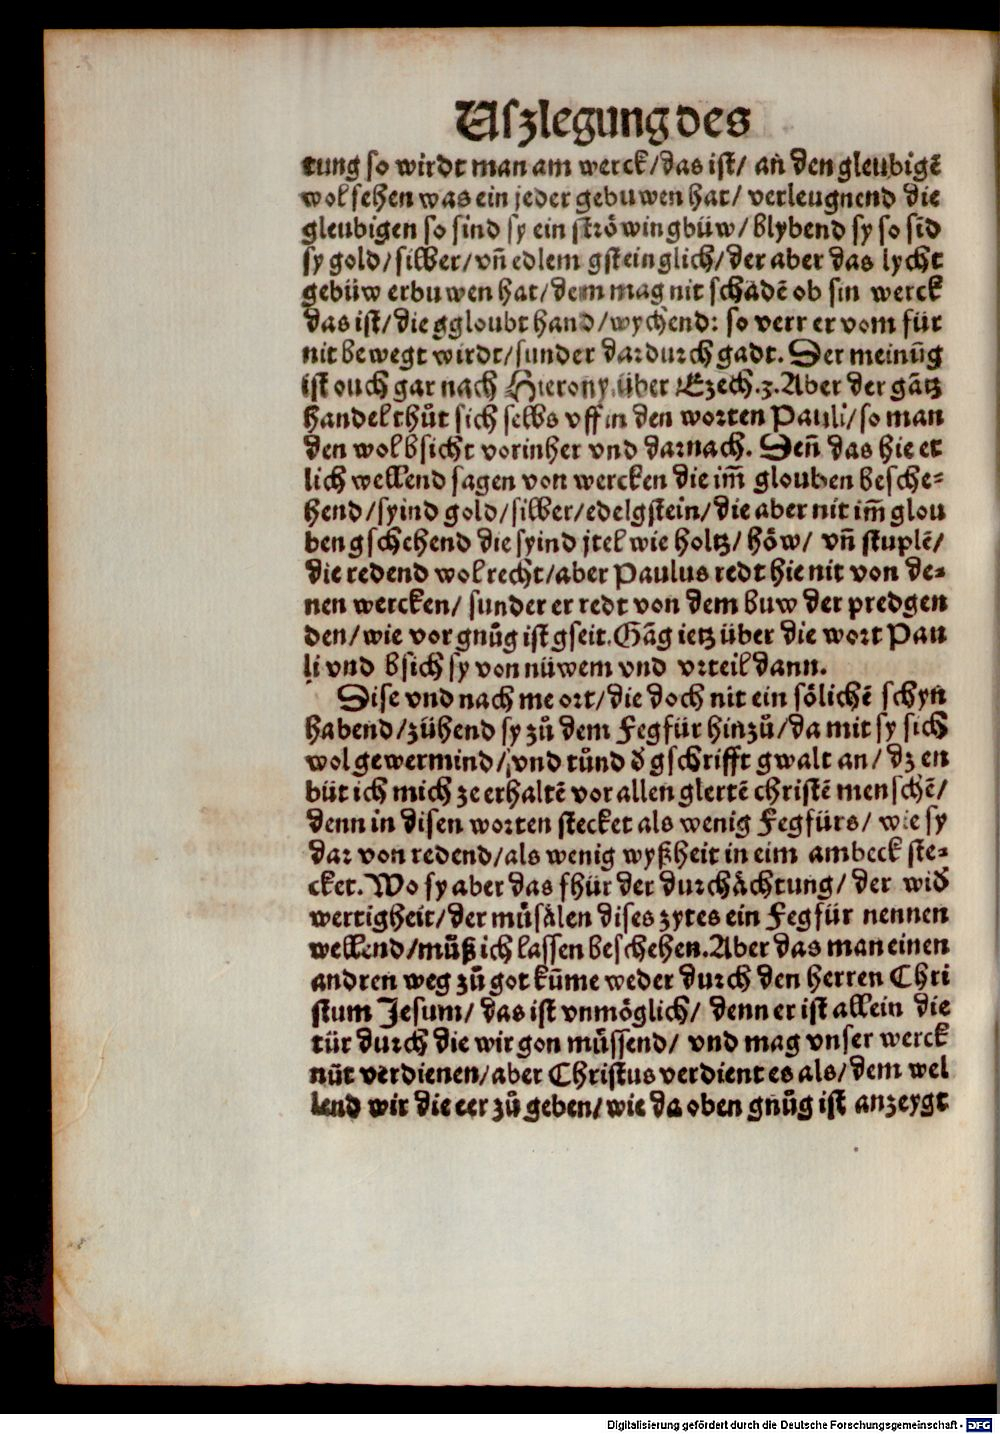 Uſzlegung des
tung so wirdt man am werck/das ist/ an den gleubigẽ
wol sehen was ein jeder gebuwen hat/ verleugnend die
gleubigen so sind sy ein ströwin gbüw/ blybend sy so sĩd
sy gold/silber/vñ edlem gstein glich/der aber das lycht
gebüw erbuwen hat/dem mag nit schadẽ ob sin werck
das ist/die ggloubt hand/wychend: so verr er vom für
nit bewegt wirdt/sunder dardurch gadt. Der meinũg
ist ouch gar nach Hierony. über Ezech. 3. Aber der gãtz
handel thůt sich selbs vff in den worten Pauli/so man
den wol bsicht vorinher vnd darnach. Deñ das hie et
lich wellend sagen von wercken die im̃ glouben besche⸗
hend/syind gold/silber/edelgstein/die aber nit im̃ glou
ben gschehend die syind jtel wie holtz/ höw/ vñ stuplẽ/
die redend wol recht/aber Paulus redt hie nit von de⸗
nen wercken/ sunder er redt von dem buw der predgen
den/wie vor gnůg ist gseit. Gãg ietz über die wort Pau
li vnd bsich sy von nüwem vnd vrteil dann.
Dise vnd nach me ort/die doch nit ein sölichẽ schyn
habend/zühend sy zů dem Fegfür hinzů/da mit sy sich
wol gewermind/vnd tůnd ð gschrifft gwalt an/ dz en
büt ich mich ze erhaltẽ vor allen glertẽ christẽ menschẽ/
denn in disen worten stecket als wenig Fegfürs/ wie sy
dar von redend/als wenig wyßheit in eim ambeck ste⸗
cket. Wo sy aber das fhür der durchächtung/ der wið
wertigheit/der můsälen dises zytes ein Fegfür nennen
wellend/můß ich lassen beschehen. Aber das man einen
andren weg zů got kũme weder durch den herren Chri
stum Jesum/ das ist vnmöglich/ denn er ist allein die
tür durch die wir gon müssend/ vnd mag vnser werck
nüt verdienen/aber Christus verdient es als/dem wel
lend wir die eer zů geben/wie da oben gnůg ist anzeygt
Digitalisierung gefördert durch die Deutsche Forschungsgemeinschaft - DFG